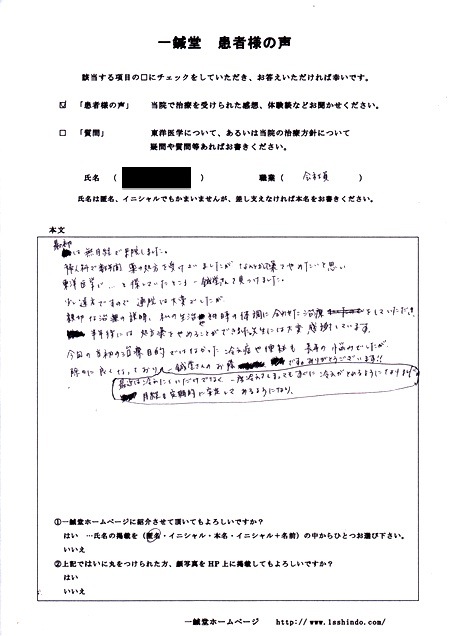 一鍼堂 患者様の声
該当する項目の□にチェックをしていただき、お答えいただければ幸いです。
☑ 「患者様の声」 当院で治療を受けられた感想、体験談などお聞かせください。
□ 「質問」 東洋医学について、あるいは当院の治療方針について
疑問や質問等あればお書きください。
氏名 ( ) 職業 ( 会社員 )
氏名は匿名、イニシャルでもかまいませんが、差し支えなければ本名をお書きください。
本文
最初は無月経で来院しました。
婦人科で数年間 薬の処方を受けていましたが なんとか薬をやめたいと思い
東洋医学で…と探していたところ 一鍼堂さんを見つけました。
少し遠方ですので 通院は大変でしたが
親切な治療の説明、私の生活や 時の体調に合わせた治療をしていただき
半年後には 処方薬をやめることができ 先生には大変 感謝しています。
今回の当初の治療目的ではなかった 冷え症や便秘も 長年の悩みでしたが
除々に良くなっており 一鍼堂さんのお陰です。ありがとうございます!!
最近は冷えにくいだけでなく 一度冷えてしまってもすぐに冷えがとれるようになりました
月経も定期的に安定して あるようになり、
①一鍼堂ホームページに紹介させて頂いてもよろしいですか?
はい …氏名の掲載を(匿名・イニシャル・本名・イニシャル+名前)の中からひとつお選び下さい。
いいえ
②上記ではいに丸をつけられた方、顔写真をHP上に掲載してもよろしいですか?
はい
いいえ
一鍼堂ホームページ http://www.1sshindo.com/